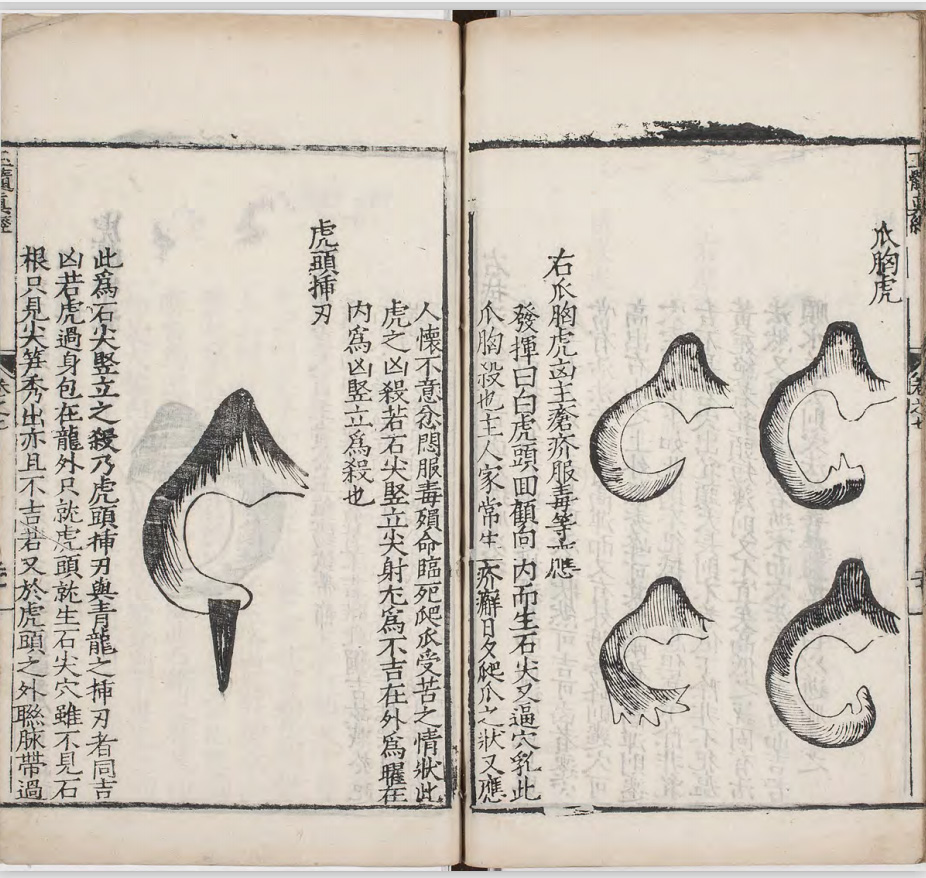 爪胸虎
右爪胸虎凶主瘡疥服毒等應
發揮曰白虎頭回顧向内而生石尖又逼穴乳此
爪胸殺也主人家常生疥癬日夕爬爪之狀又應
人懷不意忿悶服毒殞命臨死爬爪受苦之情狀此
虎之凶殺若石尖竪立尖射尤爲不吉在外爲曜在
内爲凶竪立爲殺也
虎頭揷刃
此爲石尖竪立之殺乃虎頭揷刃與青龍之揷刃者同吉
凶若虎過身包在龍外只就虎頭就生石尖穴雖不見石
根只見尖笋秀出亦且不吉若又於虎頭之外聮脉帶過
玉髓真經